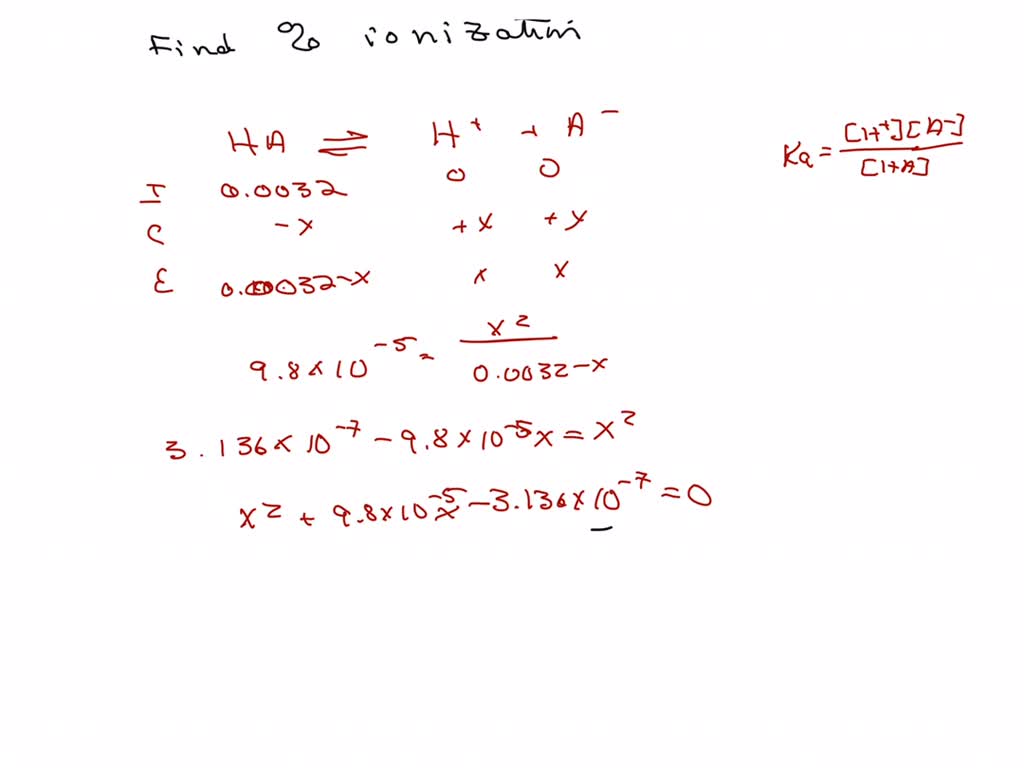 Find % ionization
HA ⇌ H⁺ + A⁻
Ka = [H⁺][A⁻] / [HA]
I 0.0032 0 0
C -x +x +x
E 0.00032-x x x
9.8 x 10⁻⁵ = x² / 0.0032-x
3.136 x 10⁻⁷ - 9.8 x 10⁻⁵x = x²
x² + 9.8 x 10⁻⁵x - 3.136 x 10⁻⁷ = 0